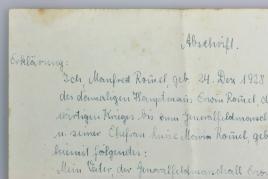 Abschrift.
Erklärung:
Ich, Manfred Rommel, geb. 24. Dez 1928
des damaligen Hauptmans Erwin Rommel, d
Krieges bis zum Generalfeldmarschall
u. seiner Ehefrau Lucie Maria Rommel, geb
hiermit folgendes:
Mein Vater, der Generalfeldmarschall Erwin